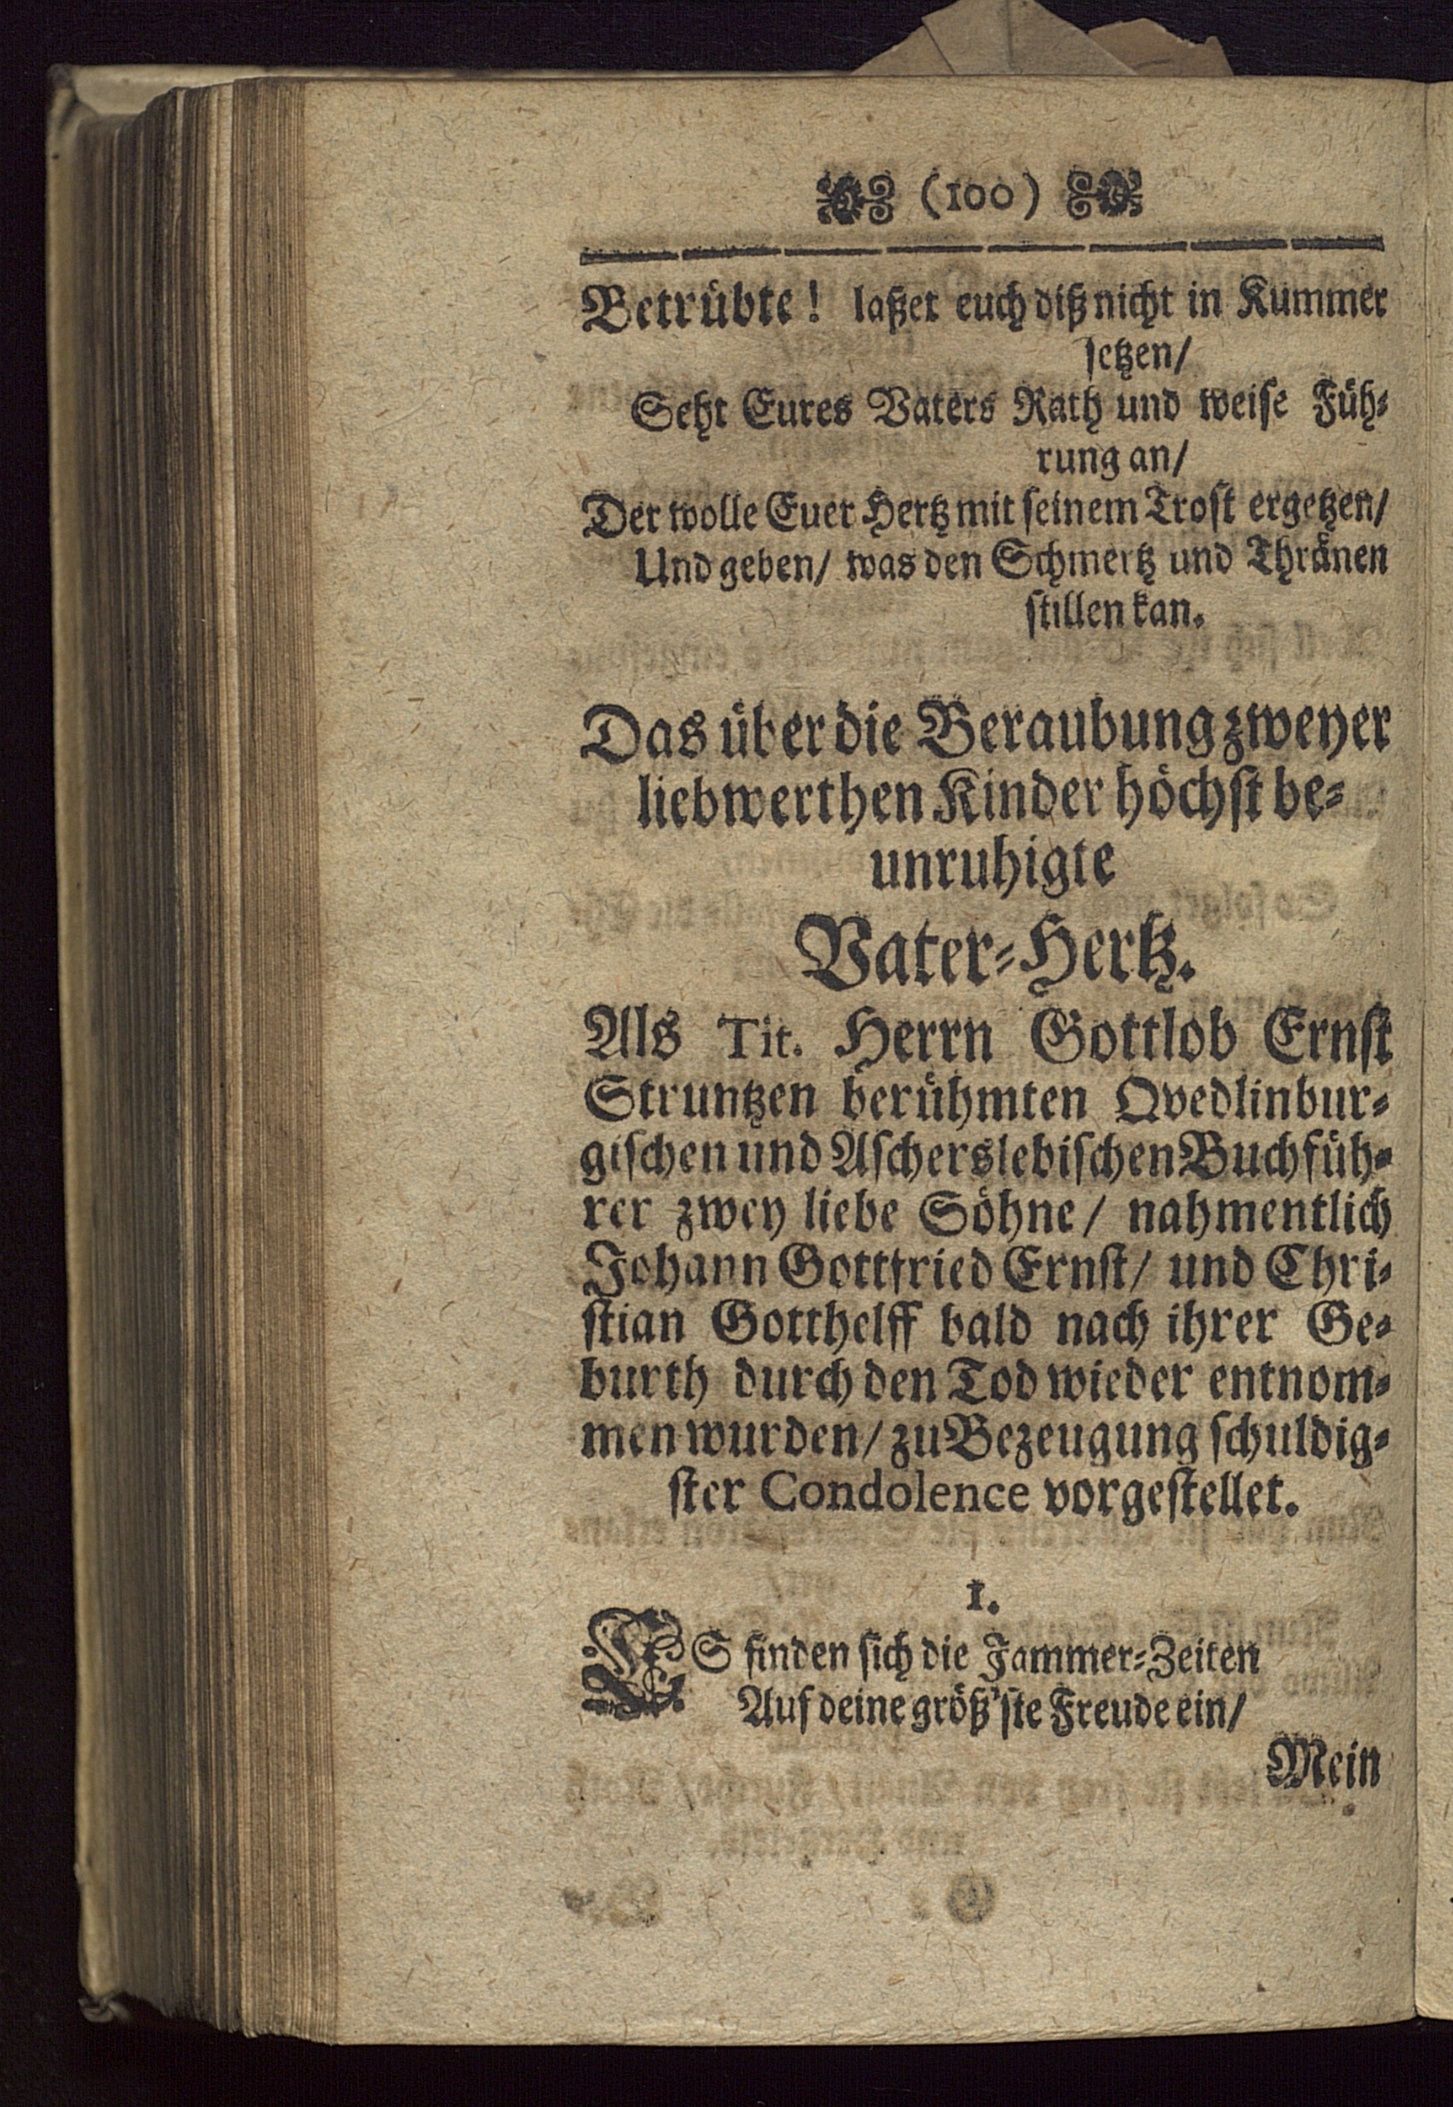 (100)
Betrübte! laßet euch diß nicht in Kummer
setzen/
Seht Eures Vaters Rath und weise Füh-
rung an/
Der wolle Euer Hertz mit seinem Trost ergetzen/
Und geben/ was den Schmertz und Thränen
stillen kan.
Das über die Beraubung zweyer
liebwerthen Kinder höchst be-
unruhigte
Vater-Hertz.
Als Tit. Herrn Gottlob Ernst
Struntzen berühmten Qvedlinbur-
gischen und Ascherslebischen Buchfüh-
rer zwey liebe Söhne/ nahmentlich
Johann Gottfried Ernst/ und Chri-
stian Gotthelff bald nach ihrer Ge-
burth durch den Tod wieder entnom-
men wurden/ zu Bezeugung schuldig-
ster Condolence vorgestellet.
1.
ES finden sich die Jammer-Zeiten
Auf deine größ'ste Freude ein/
Mein